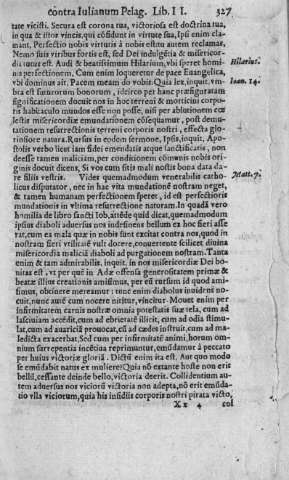 contra Iulianum Pelag. Lib. I I. 327
tate vicisti. Secura est corona tua, victoriosa est doctrina tua,
in qua & illos vincis, qui cōfidunt in virtute sua, Ipsi enim cla-
mant, Perfectio nobis virtutis à nobis est: tu autem reclamas,
Nemo suis viribus fortis est, sed Dei indulgētia & misericor-
dia tutus est. Audi & beatissimum Hilarium, vbi speret homi-
Hilarius.
na perfectionem. Cum enim loqueretur de pace Euangelica,
vbi dominus ait, Pacem meam do vobis: Quia lex, inquit, vm-
Ioan. 14.
bra est futurorum bonorum, idcirco per hanc præfiguratam
significationem docuit nos in hoc terreni & morticini corpo-
ris habitaculo mundos esse non posse, nisi per ablutionem cœ-
lestis misericordiæ emundationem cōsequamur, post demu-
tationem resurrectionis terreni corporis nostri, effecta glo-
riosiore natura. Rursus in eodem sermone, Ipsos, inquit, Apo-
stolos verbo licet iam fidei emendatos atque sanctificatis, non
deesse tamen malitiam, per conditionem cōmunis nobis ori-
ginis docuit dicens, Si vos cum sitis mali nostis bona data da-
Matt. 7.
re filiis vestris. Vides quemadmodum venerabilis catho-
licus disputator, nec in hac vita mundationē nostram neget,
& tamen humanam perfectionem speret, id est perfectiorem
mundationis in vltima resurrectione naturam. In quadā vero
homilia de libro sancti Iob, aitēde quid dicat, quemadmodum
ipsus diaboli aduersus nos indesinens bellum ex hoc fieri asse-
rat, cum ea mala quæ in nobis sunt excitat contra nos, quod in
nostram fieri vtilitatē vult docere, conuertente scilicet diuina
misericordia malitia diaboli ad purgationem nostram. Tanta
enim & tam admirabilis, inquit, in nos misericordiæ Dei bo-
nitas est, vt per quē in Adæ offensa generositatem primæ &
beatæ illius creationis amisimus, per eū rursum id quod ami-
simus, obtinere mereamur: tunc enim diabolus inuidens no-
cuit, nunc autē cum nocere nititur, vincitur. Mouet enim per
infirmitatem carnis nostræ omnia potestatis suæ tela, cum ad
lasciuiam accēdit, cum ad ebrietatē illicit, cum ad odia stimu-
lat, cum ad auaritiā prouocat, cū ad cædes instruit, cum ad ma-
ledicta exacerbat. Sed cum per infirmitatē animi, horum om-
nium surrepentia incentiua reprimuntur, emūdamur à peccato
per huius victoriæ gloriā. Dictū enim ita est. Aut quo modo
se emūdabit natus ex muliere? Quia nō extante hoste non erit
bellū, cessante deinde bello, victoria deerit. Collidentium au-
tem aduersus nos vitiorū victoria non adepta, nō erit emūda-
tio vlla vitiorum, quia his insidiis corporis nostri pirata victo,
Xx 4 col